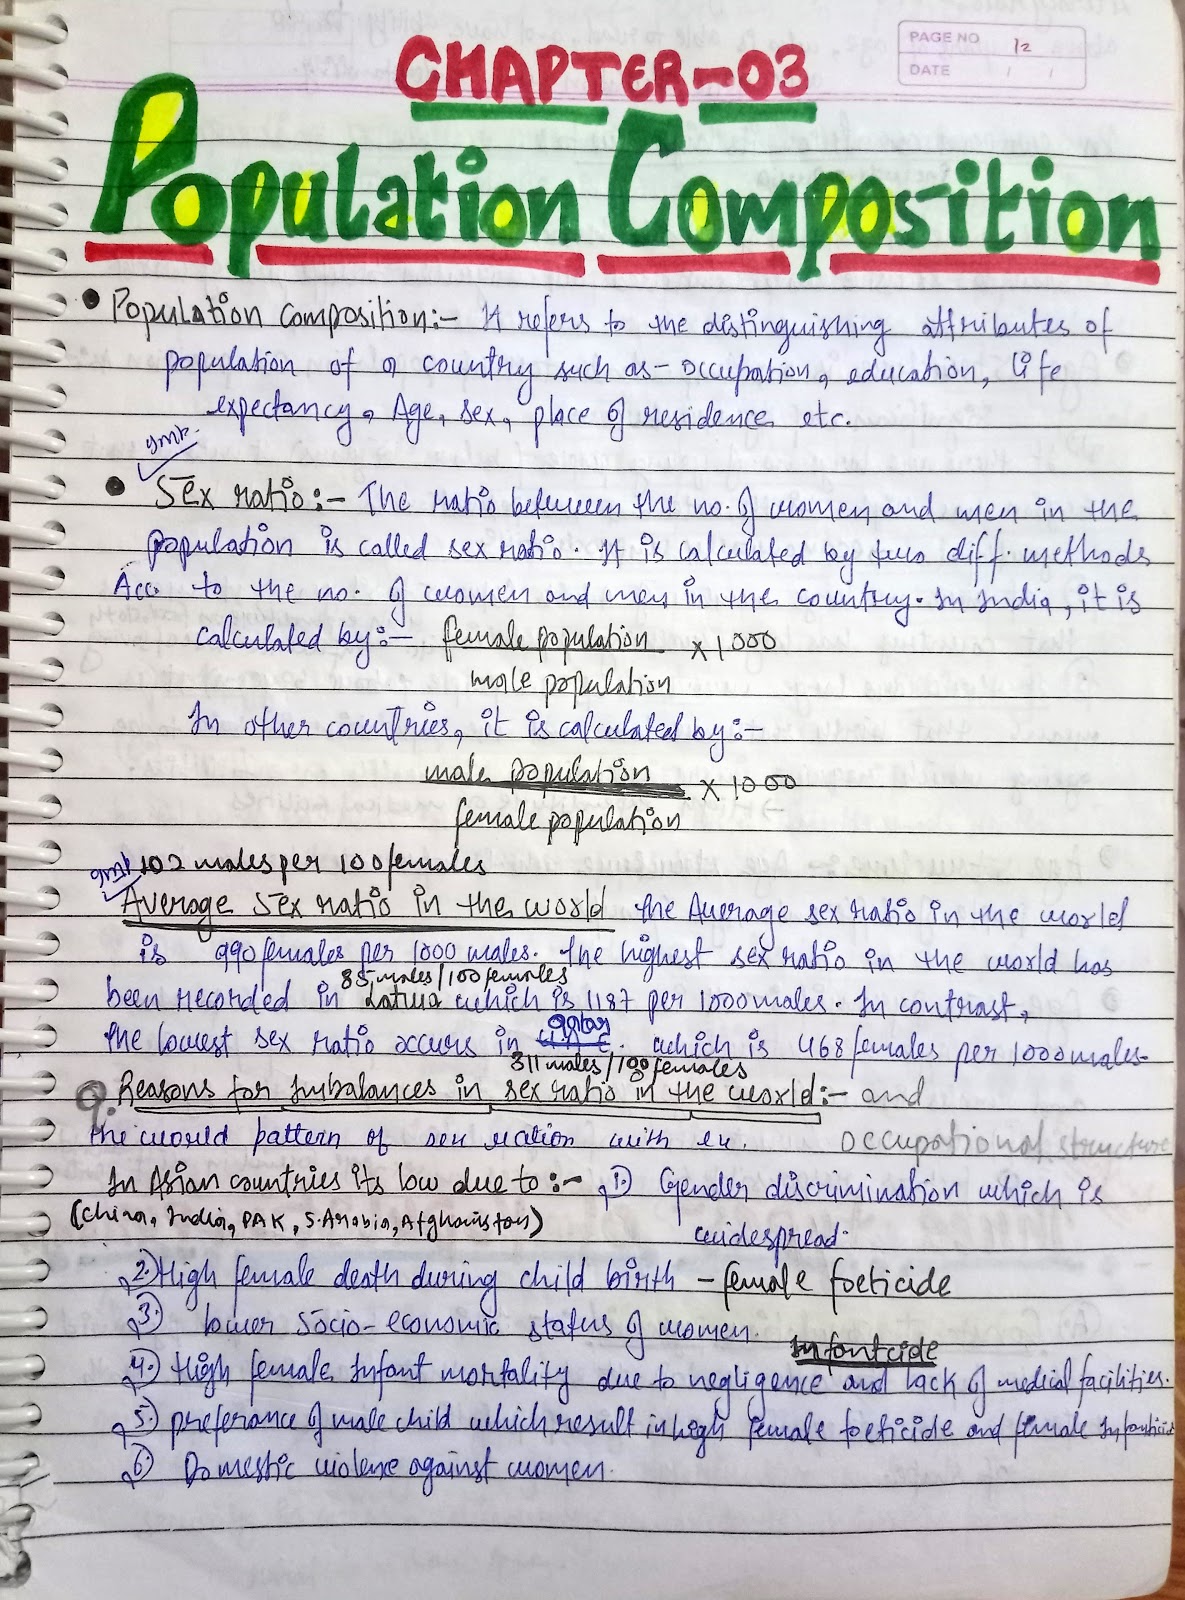 PAGE NO 12
DATE / /
CHAPTER-03
Population Composition
• Population Composition:- It refers to the distinguishing attributes of
population of a country such as- occupation, education, life
expectancy, Age, sex, place of residence etc.
Imp.
• Sex ratio:- The ratio between the no. of women and men in the
population is called sex ratio. It is calculated by two diff. methods
Acc. to the no. of women and men in the country. In India, it is
calculated by:- female population × 1000
male population
In other countries, it is calculated by:-
male population × 1000
female population
Imp. 102 males per 100 females
Average Sex ratio in the world the Average sex ratio in the world
is 990 females per 1000 males. The highest sex ratio in the world has
85 males/100 females
been recorded in Latvia which is 1187 per 1000 males. In contrast,
Qatar
the lowest sex ratio occurs in which is 468 females per 1000 males.
311 males/100 females
Q. Reasons for Imbalances in sex ratio in the world:- and
the world pattern of sex ration with ex. occupational structure
In Asian countries its low due to:- 1) Gender discrimination which is
(China, India, PAK, S.Arabia, Afghainston) widespread.
2) High female death during child birth - female foeticide
3) lower socio-economic status of women.
Infantcide
4) High female Infant mortality due to negligence and lack of medical facilities.
5) preferance of male child which result in high female foeticide and female Infanticid
6) Domestic violence against women.